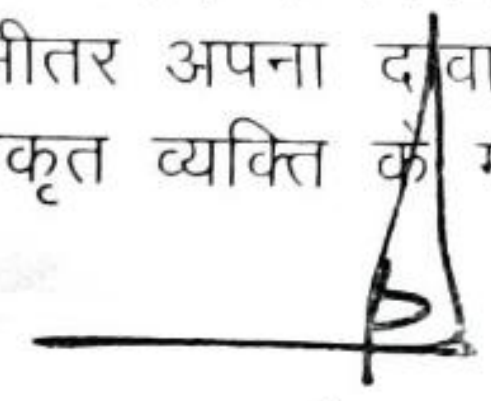 भीतर अपना दावा
कृत व्यक्ति के